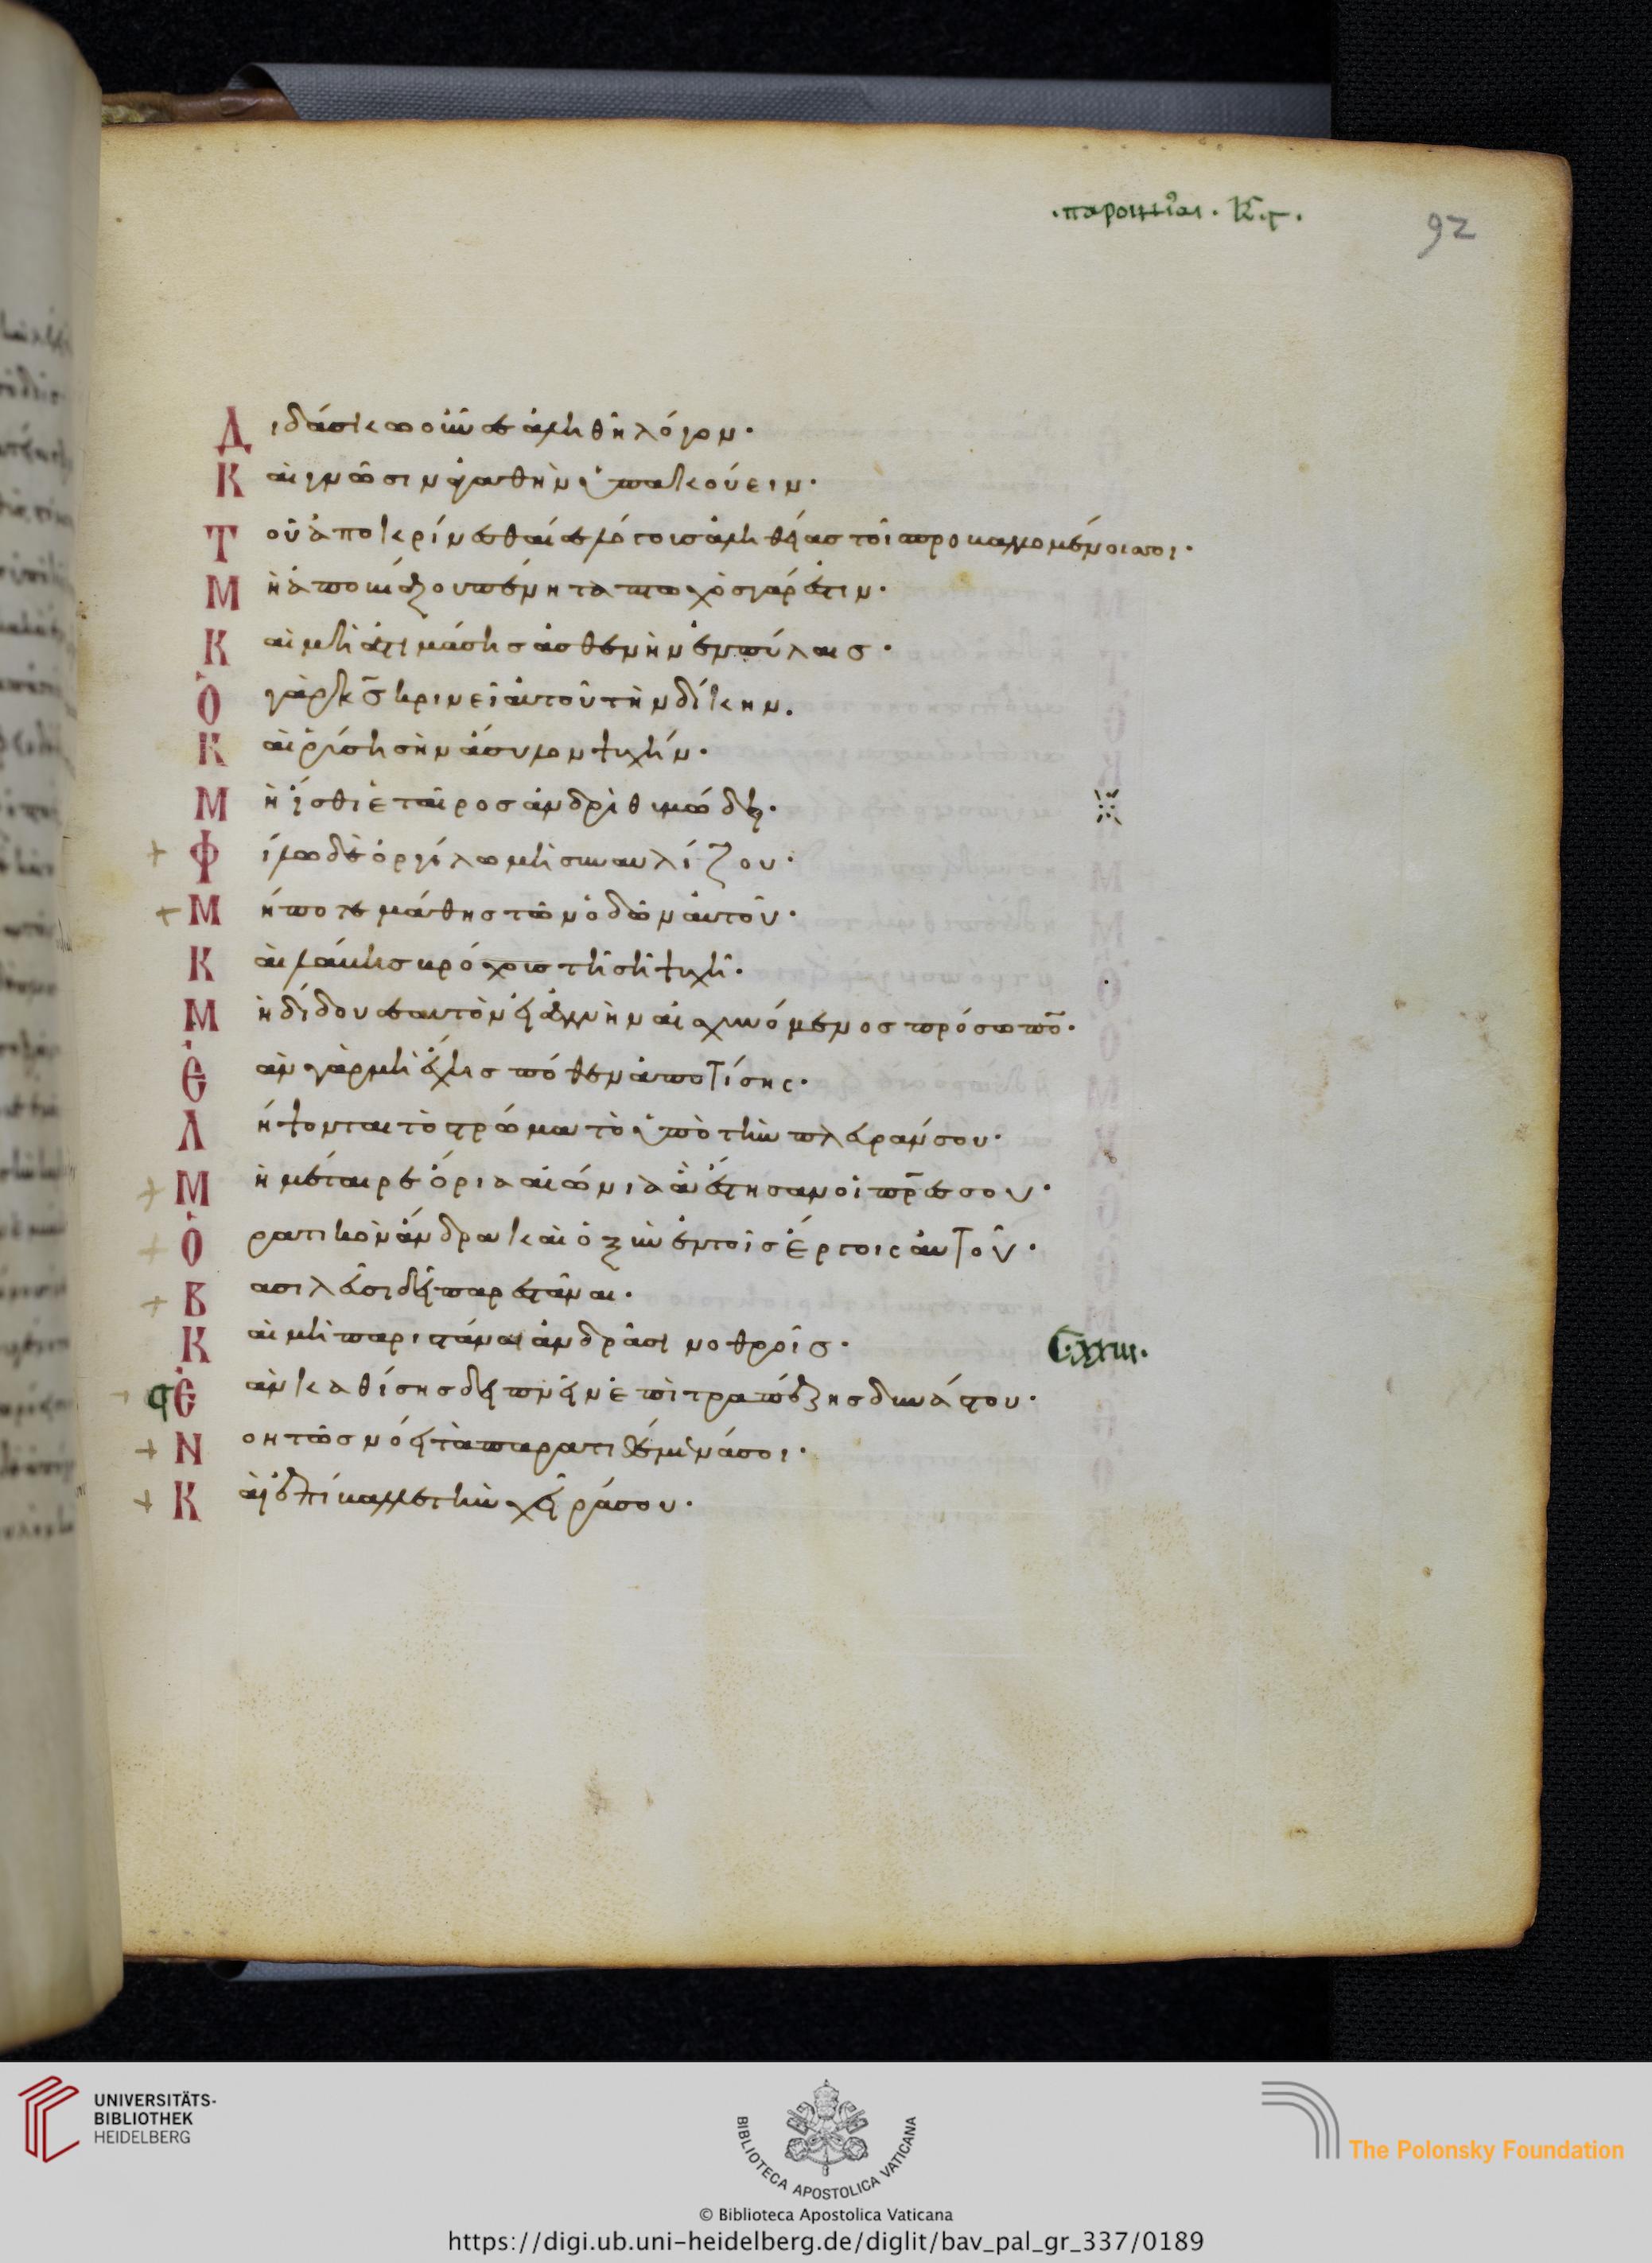 ·παροιμίαι· Κ̅·γ·
92
Διδάσκω οὖν σε ἀληθῆ λόγον·
Καὶ γνῶσιν ἀγαθὴν ὑπακούειν·
Τοῦ ἀποκρίνεσθαί σε λόγοις ἀληθείας τοῖς προβαλλομένοις σοι·
Μὴ ἀποβιάζου πένητα πτωχὸς γάρ ἐστιν·
Καὶ μὴ ἀτιμάσῃς ἀσθενῆ ἐν πύλαις·
Ὁ γὰρ κ̅ς̅ κρινεῖ αὐτοῦ τὴν δίκην.
Καὶ ῥύσῃ σὴν ἄσυλον ψυχήν·
Μὴ ἴσθι ἑταῖρος ἀνδρὶ θυμώδει·
Φίλω δὲ ὀργίλω μὴ συναυλίζου·
Μήποτε μάθης τῶν ὁδῶν αὐτοῦ·
Καὶ λάβῃς βρόχους τῇ σῇ ψυχῇ·
Μὴ δίδου σεαυτὸν εἰς ἐγγύην αἰσχυνόμενος πρόσωπο̅·
Ἐὰν γὰρ μὴ ἔχῃς πόθεν ἀποτίσης·
Λήψονται τὸ στρῶμα τὸ ὑπὸ τὴν πλευράν σου·
Μὴ μέταιρε ὅρια αἰώνια ἃ ἔστησαν οἱ πρ̅ες σου·
Ὁρατικὸν ἄνδρα καὶ ὀξὺν ἐν τοῖς ἔργοις αὐτοῦ·
Βασιλεῦσι δεῖ παρεστάναι·
Καὶ μὴ παρεστάναι ἀνδράσι νωθροῖς·
C·xxiii·
Ἐὰν καθίσης δειπνεῖν ἐπὶ τραπέζης δυνάστου·
Νοητῶς νόει τὰ παρατιθέμενά σοι·
Καὶ ἐπίβαλλε τὴν χεῖρά σου·
UNIVERSITÄTS-
BIBLIOTHEK
HEIDELBERG
BIBLIOTECA APOSTOLICA VATICANA
The Polonsky Foundation
© Biblioteca Apostolica Vaticana
https://digi.ub.uni-heidelberg.de/diglit/bav_pal_gr_337/0189